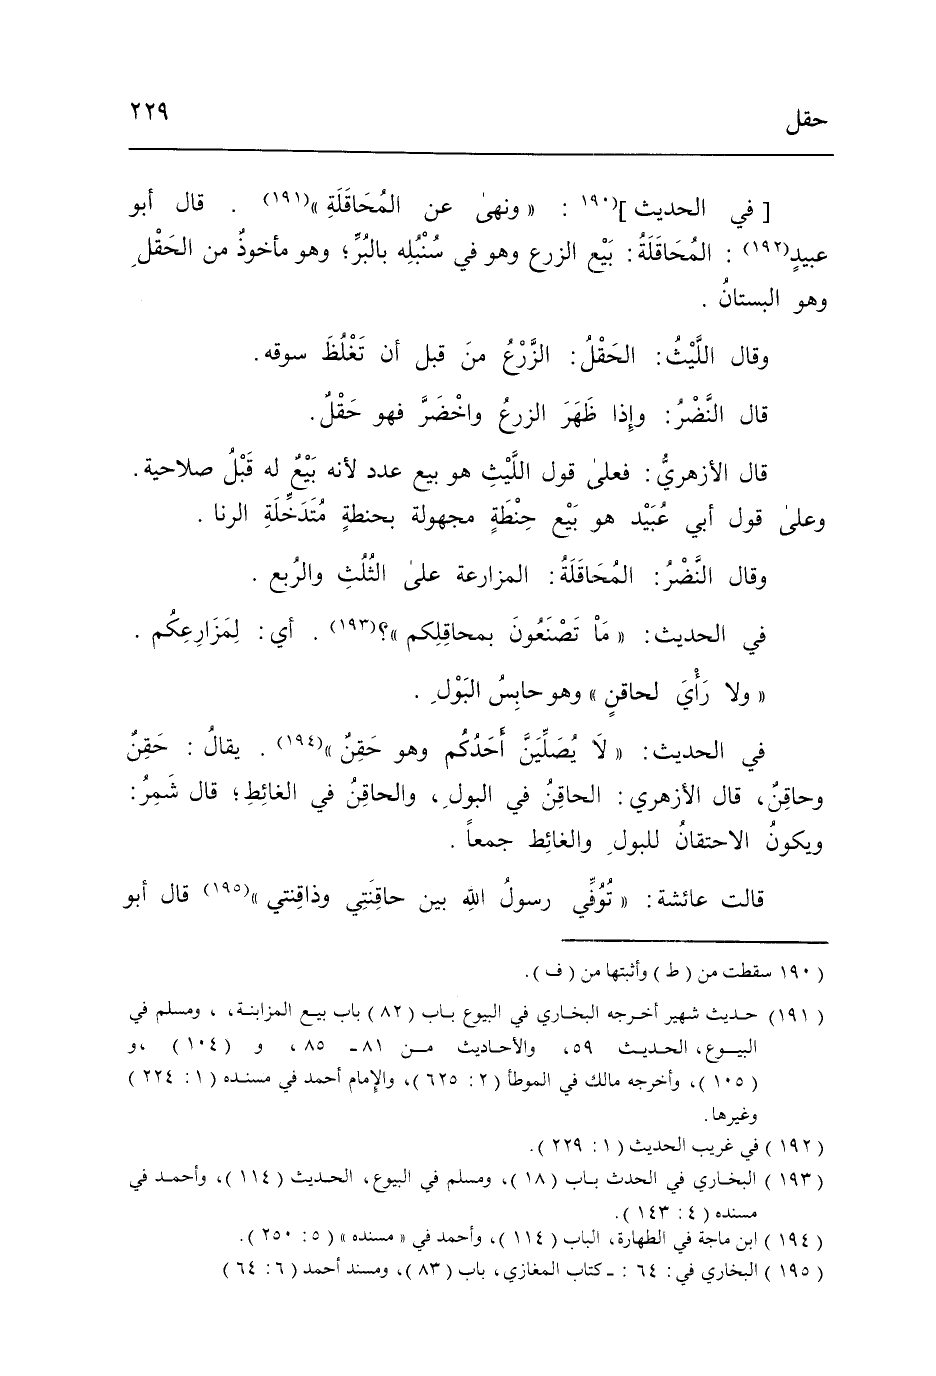 حقل ٢٢٩
[ في الحديث ](١٩٠ : « ونهىٰ عن المُحَاقَلَةِ »(١٩١) . قال أبو
عبيدٍ(١٩٢) : المُحَاقَلَةُ : بَيْع الزرع وهو في سُنْبُلِه بالبُرِّ؛ وهو مأخوذٌ من الحَقْلِ
وهو البستانُ .
وقال اللَّيْثُ : الحَقْلُ : الزَّرْعُ منَ قبل أن تَغْلُظَ سوقه .
قال النَّضْرُ : وإذا ظَهَرَ الزرعُ واخْضَرَّ فهو حَقْلٌ .
قال الأزهريُّ : فعلىٰ قول اللَّيْثِ هو بيع عدد لأنه بَيْعٌ له قَبْلُ صلاحية .
وعلىٰ قول أبي عُبَيْد هو بَيْع حِنْطَةٍ مجهولة بحنطةٍ مُتَدَخِّلَةِ الرنا .
وقال النَّضْرُ : المُحَاقَلَةُ : المزارعة علىٰ الثُلُثِ والرُبع .
في الحديث : « مَاْ تَصْنَعُونَ بمحاقِلِكم »؟(١٩٣) . أي : لِمَزَارِعِكُم .
« ولا رَأْيَ لحاقنٍ » وهو حابِسُ البَوْلِ .
في الحديث : « لَا يُصَلِّيَنَّ أَحَدُكُم وهو حَقِنٌ »(١٩٤) . يقالُ : حَقِنٌ
وحاقِنٌ، قال الأزهري : الحاقِنُ في البولِ ، والحاقِنُ في الغائِطِ؛ قال شَمِرُ :
ويكونُ الاحتقانُ للبولِ والغائِط جمعاً .
قالت عائشة : « تُوُفِّي رسولُ اللهِ بين حاقِنَتِي وذاقِنتي »(١٩٥) قال أبو
( ١٩٠ سقطت من ( ط ) وأثبتها من ( ف ).
( ١٩١) حديث شهير أخرجه البخاري في البيوع باب ( ٨٢ ) باب بيع المزابنة، ، ومسلم في
البيوع، الحديث ٥٩، والأحاديث من ٨١ـ ٨٥ ، و ( ١٠٤ ) ،و
( ١٠٥ )، وأخرجه مالك في الموطأ ( ٢ : ٦٢٥ )، والإمام أحمد في مسنده ( ١ : ٢٢٤ )
وغيرها.
( ١٩٢ ) في غريب الحديث ( ١ : ٢٢٩ ).
( ١٩٣ ) البخاري في الحدث باب ( ١٨ )، ومسلم في البيوع، الحديث ( ١١٤ )، وأحمد في
مسنده ( ٤ : ١٤٣ ).
( ١٩٤ ) ابن ماجة في الطهارة، الباب ( ١١٤ )، وأحمد في « مسنده » ( ٥ : ٢٥٠ ).
( ١٩٥ ) البخاري في : ٦٤ : ـ كتاب المغازي، باب ( ٨٣ )، ومسند أحمد ( ٦ : ٦٤ )